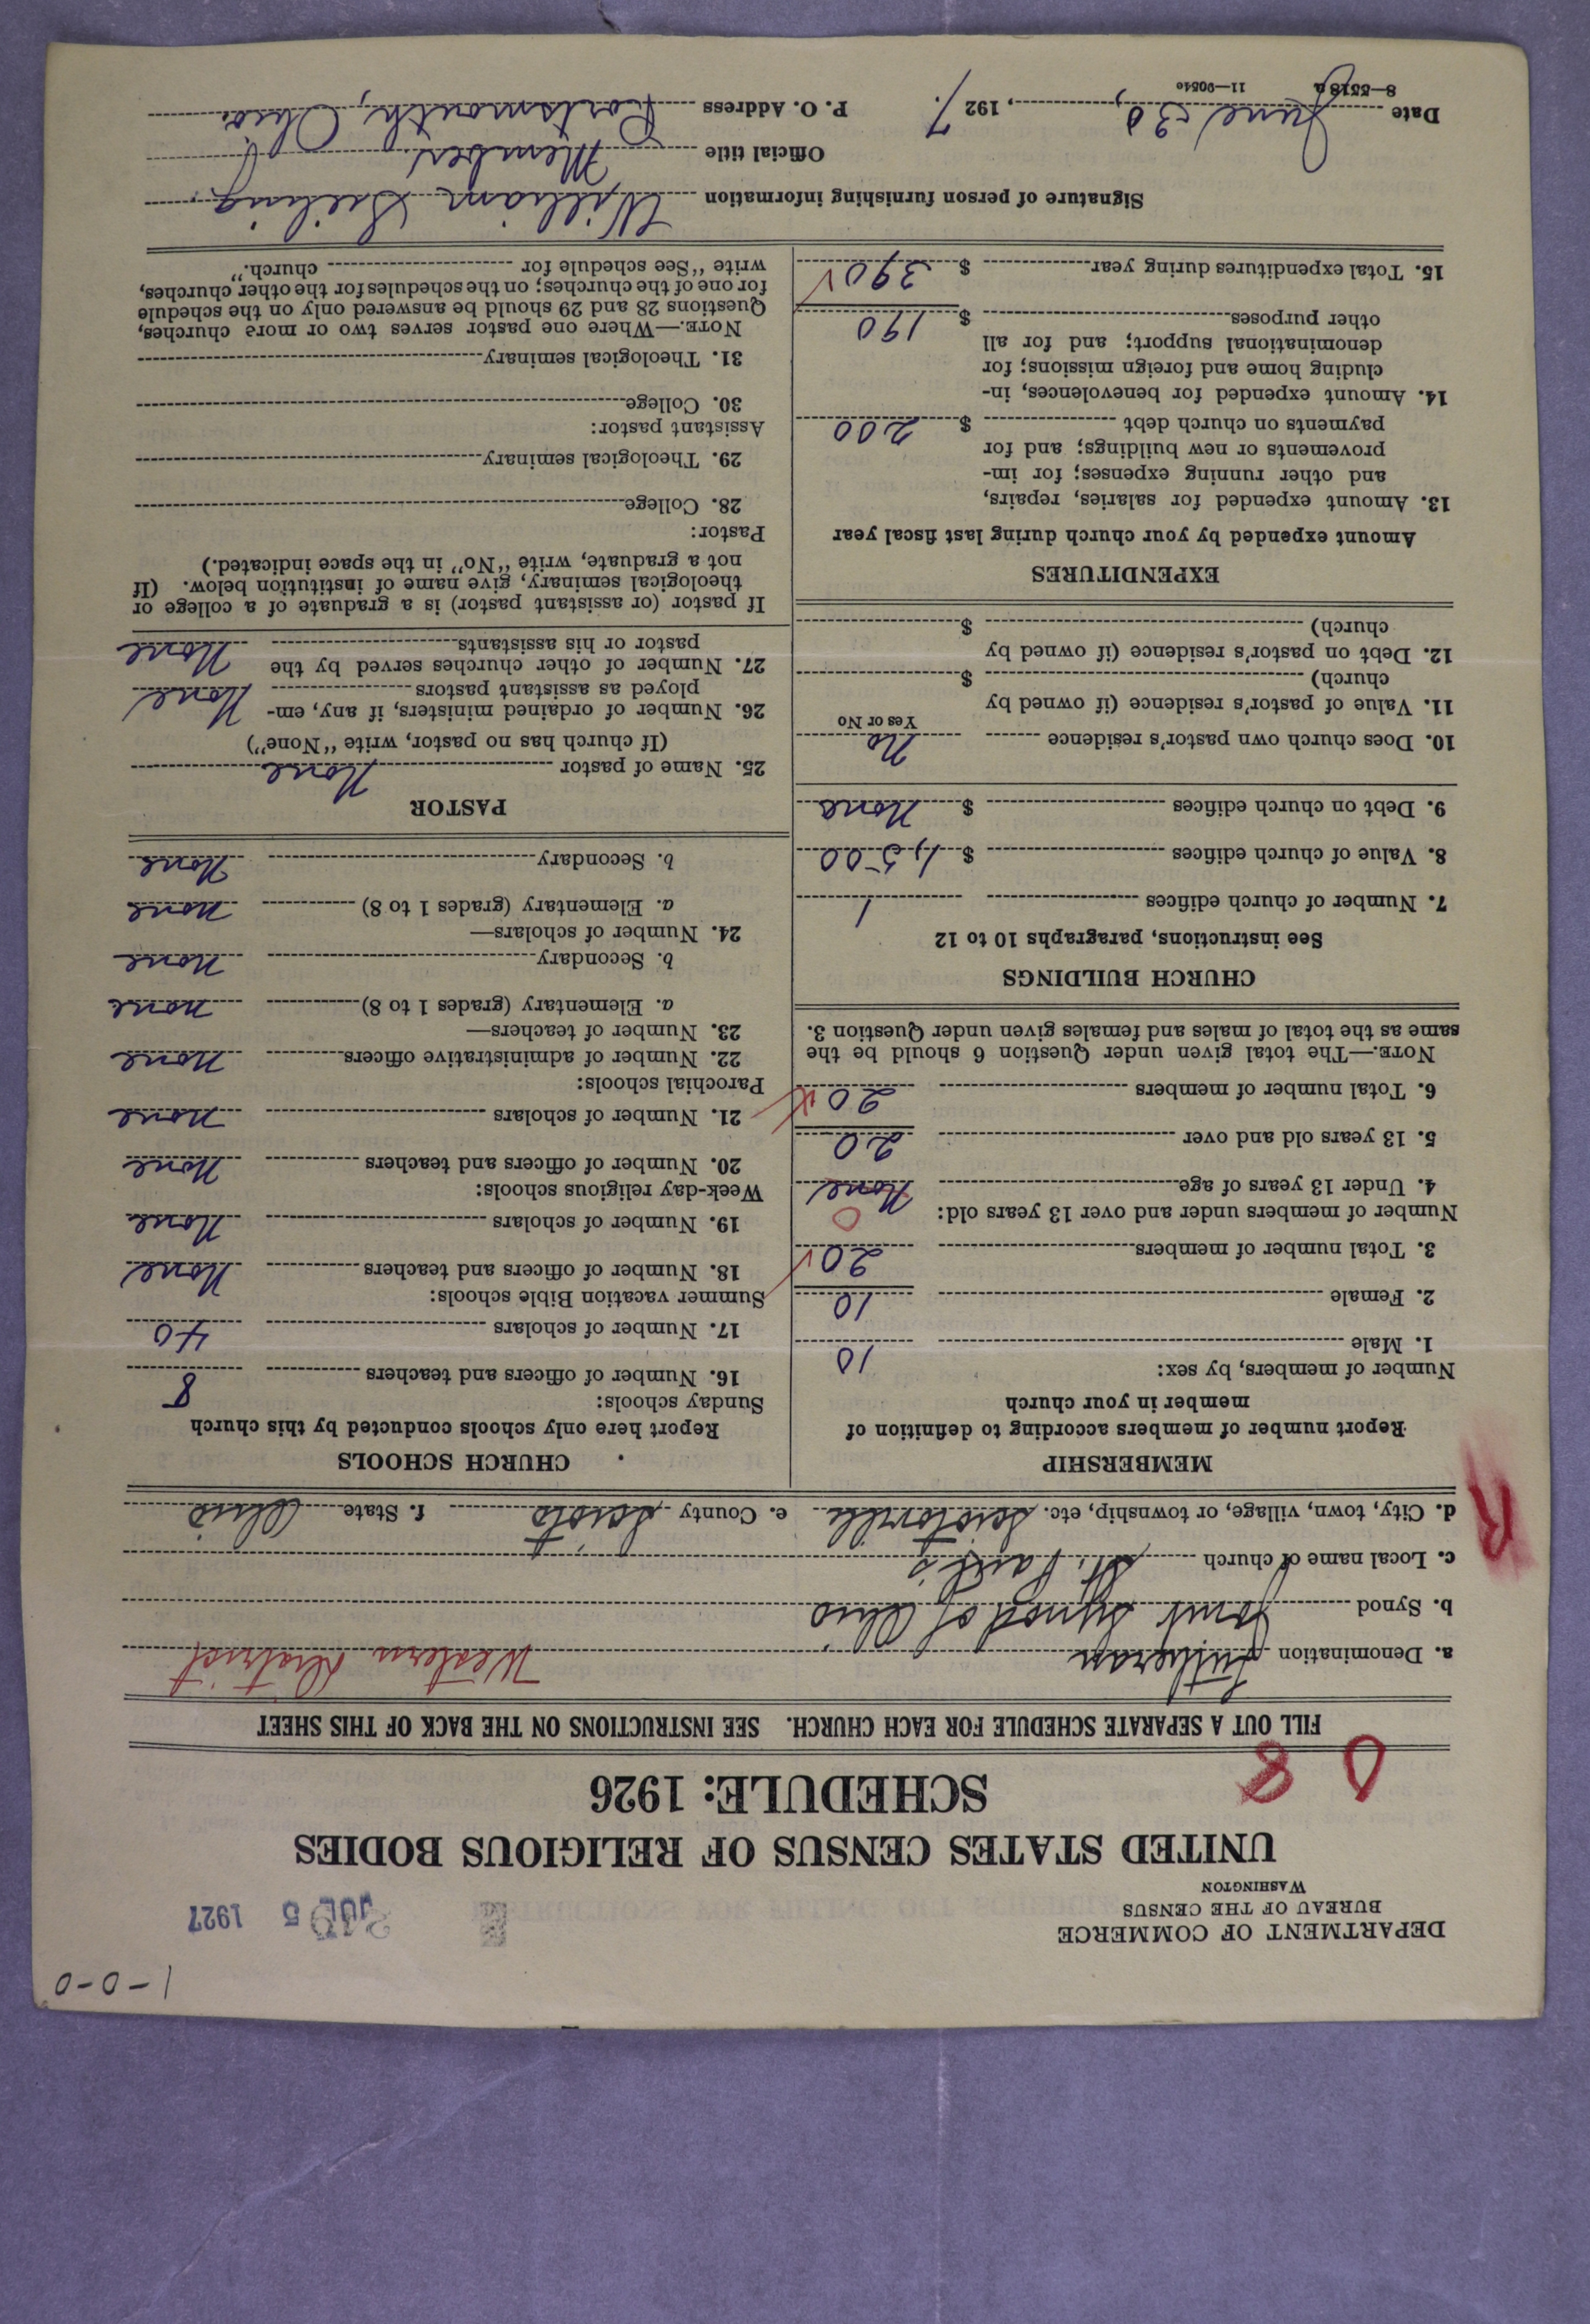 1-0-0
DEPARTMENT OF COMMERCE
BUREAU OF THE CENSUS
WASHINGTON
JUL 5 1927
UNITED STATES CENSUS OF RELIGIOUS BODIES
SCHEDULE: 1926
0 8
FILL OUT A SEPARATE SCHEDULE FOR EACH CHURCH. SEE INSTRUCTIONS ON THE BACK OF THIS SHEET
a. Denomination Lutheran Western District
b. Synod Joint Synod of Ohio
c. Local name of church St. Paul's
d. City, town, village, or township, etc. Sciotoville e. County Scioto f. State Ohio
R
MEMBERSHIP
Report number of members according to definition of
member in your church
Number of members, by sex:
1. Male 10
2. Female 10
3. Total number of members 20
Number of members under and over 13 years old: 0
4. Under 13 years of age None
5. 13 years old and over 20
6. Total number of members 20
NOTE.—The total given under Question 6 should be the
same as the total of males and females given under Question 3.
CHURCH BUILDINGS
See instructions, paragraphs 10 to 12
7. Number of church edifices 1
8. Value of church edifices $ 1,500
9. Debt on church edifices $ None
10. Does church own pastor's residence No
Yes or No
11. Value of pastor's residence (if owned by
church) $
12. Debt on pastor's residence (if owned by
church) $
EXPENDITURES
Amount expended by your church during last fiscal year
13. Amount expended for salaries, repairs,
and other running expenses; for im-
provements or new buildings; and for
payments on church debt $ 200
14. Amount expended for benevolences, in-
cluding home and foreign missions; for
denominational support; and for all
other purposes $ 190
15. Total expenditures during year $ 390
CHURCH SCHOOLS
Report here only schools conducted by this church
Sunday schools:
16. Number of officers and teachers 8
17. Number of scholars 40
Summer vacation Bible schools:
18. Number of officers and teachers None
19. Number of scholars None
Week-day religious schools:
20. Number of officers and teachers None
21. Number of scholars None
Parochial schools:
22. Number of administrative officers None
23. Number of teachers—
a. Elementary (grades 1 to 8) None
b. Secondary None
24. Number of scholars—
a. Elementary (grades 1 to 8) None
b. Secondary None
PASTOR
25. Name of pastor None
(If church has no pastor, write "None")
26. Number of ordained ministers, if any, em-
ployed as assistant pastors None
27. Number of other churches served by the
pastor or his assistants None
If pastor (or assistant pastor) is a graduate of a college or
theological seminary, give name of institution below. (If
not a graduate, write "No" in the space indicated.)
Pastor:
28. College
29. Theological seminary
Assistant pastor:
30. College
31. Theological seminary
NOTE.—Where one pastor serves two or more churches,
Questions 28 and 29 should be answered only on the schedule
for one of the churches; on the schedules for the other churches,
write "See schedule for church."
Signature of person furnishing information William
Official title Member
Date June 30, 1927. P. O. Address Portsmouth, Ohio.
8—5518a 11—9051c